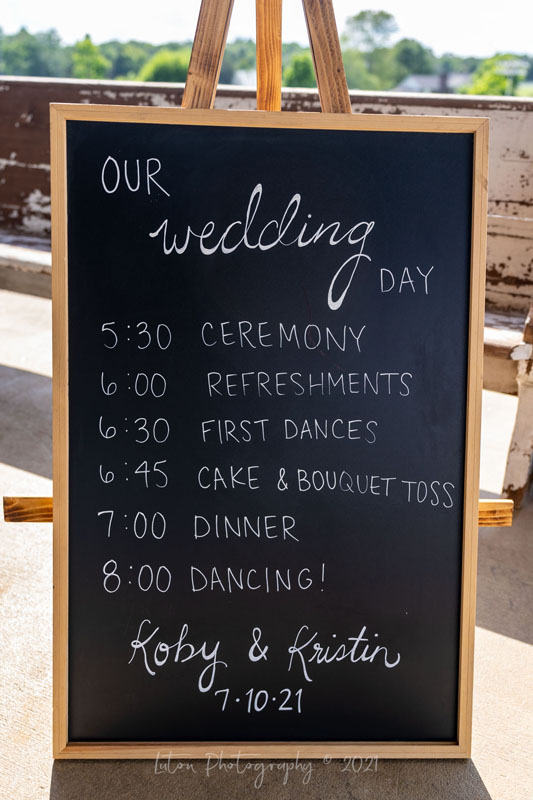 OUR
wedding
DAY
5:30 CEREMONY
6:00 REFRESHMENTS
6:30 FIRST DANCES
6:45 CAKE & BOUQUET TOSS
7:00 DINNER
8:00 DANCING!
Koby & Kristin
7·10·21
Luton Photography © 2021